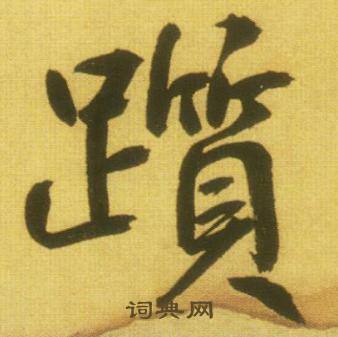 躓
词典网